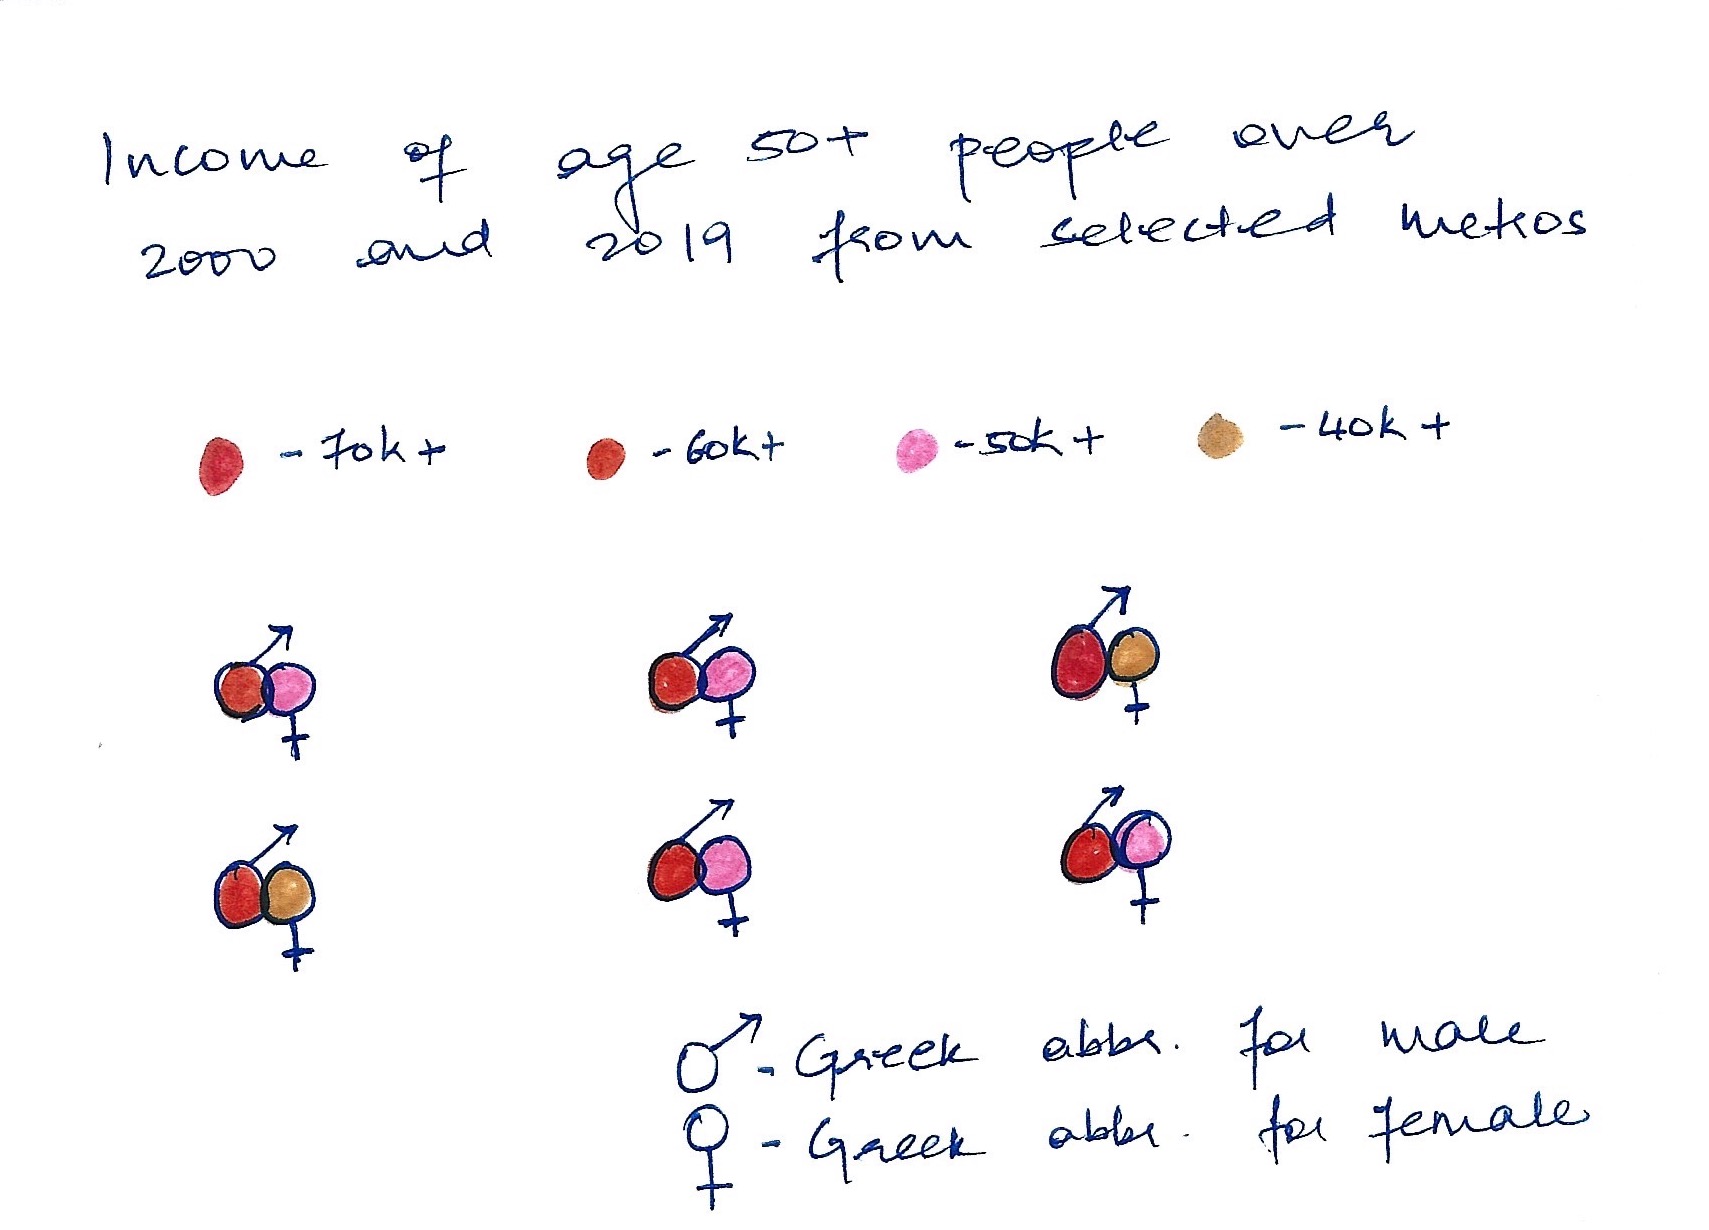 Income of age 50+ people over
2000 and 2019 from selected metros
- 70k + - 60k+ - 50k + - 40k +
♂ - Greek abbr. for male
♀ - Greek abbr. for female